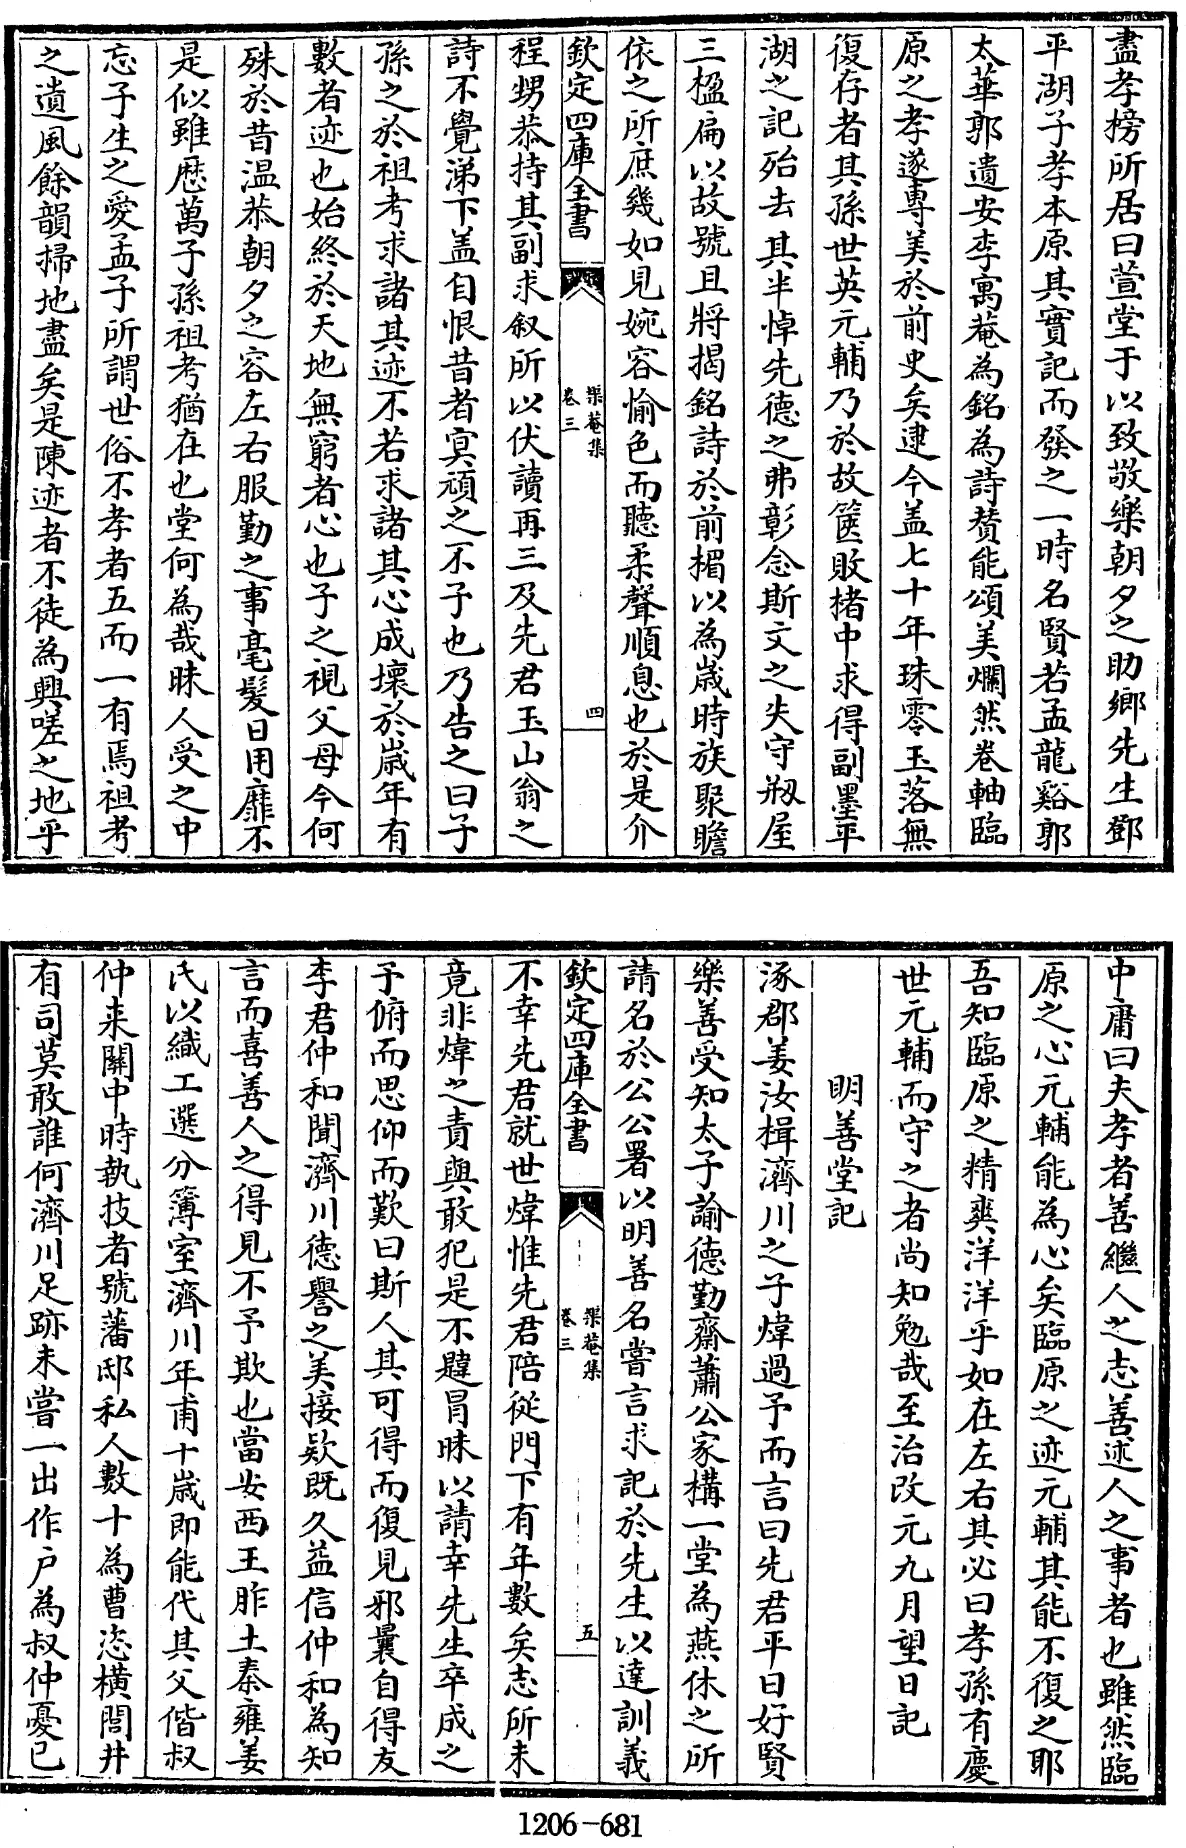 盡孝榜所居曰萱堂于以致敬樂朝夕之助鄉先生鄧
平湖子孝本原其實記而發之一時名賢若孟龍谿郭
太華郭遺安李寓菴為銘為詩賛能頌美爛然卷軸臨
原之孝遂專美於前史矣逮今盖七十年珠零玉落無
復存者其孫世英元輔乃於故篋敗楮中求得副墨平
湖之記殆去其半悼先德之弗彰念斯文之失守剏屋
三楹扁以故號且將揭銘詩於前楣以為歳時族聚瞻
依之所庶幾如見婉容愉色而聽柔聲順息也於是介
欽定四庫全書
榘菴集
卷三
四
程甥恭持其副求叙所以伏讀再三及先君玉山翁之
詩不覺涕下盖自恨昔者冥頑之不子也乃告之曰子
孫之於祖考求諸其迹不若求諸其心成壞於歳年有
數者迹也始終於天地無窮者心也子之視父母今何
殊於昔温恭朝夕之容左右服勤之事毫髪日用靡不
是似雖歴萬子孫祖考猶在也堂何為哉昧人受之中
忘子生之愛孟子所謂世俗不孝者五而一有焉祖考
之遺風餘韻掃地盡矣是陳迹者不徒為興嗟之地乎
中庸曰夫孝者善繼人之志善述人之事者也雖然臨
原之心元輔能為心矣臨原之迹元輔其能不復之耶
吾知臨原之精爽洋洋乎如在左右其必曰孝孫有慶
世元輔而守之者尚知勉哉至治改元九月望日記
明善堂記
涿郡姜汝楫濟川之子煒過予而言曰先君平日好賢
樂善受知太子諭德勤齋蕭公家構一堂為燕休之所
請名於公公署以明善名嘗言求記於先生以達訓義
欽定四庫全書
榘菴集
卷三
五
不幸先君就世煒惟先君陪從門下有年數矣志所未
竟非煒之責與敢犯是不韙冒昧以請幸先生卒成之
予俯而思仰而歎曰斯人其可得而復見邪曩自得友
李君仲和聞濟川德譽之美接欵既久益信仲和為知
言而喜善人之得見不予欺也當安西王胙土秦雍姜
氏以織工選分簿室濟川年甫十歳即能代其父偕叔
仲来關中時執技者號藩邸私人數十為曹恣横閭井
有司莫敢誰何濟川足跡未嘗一出作户為叔仲憂已
1206-681